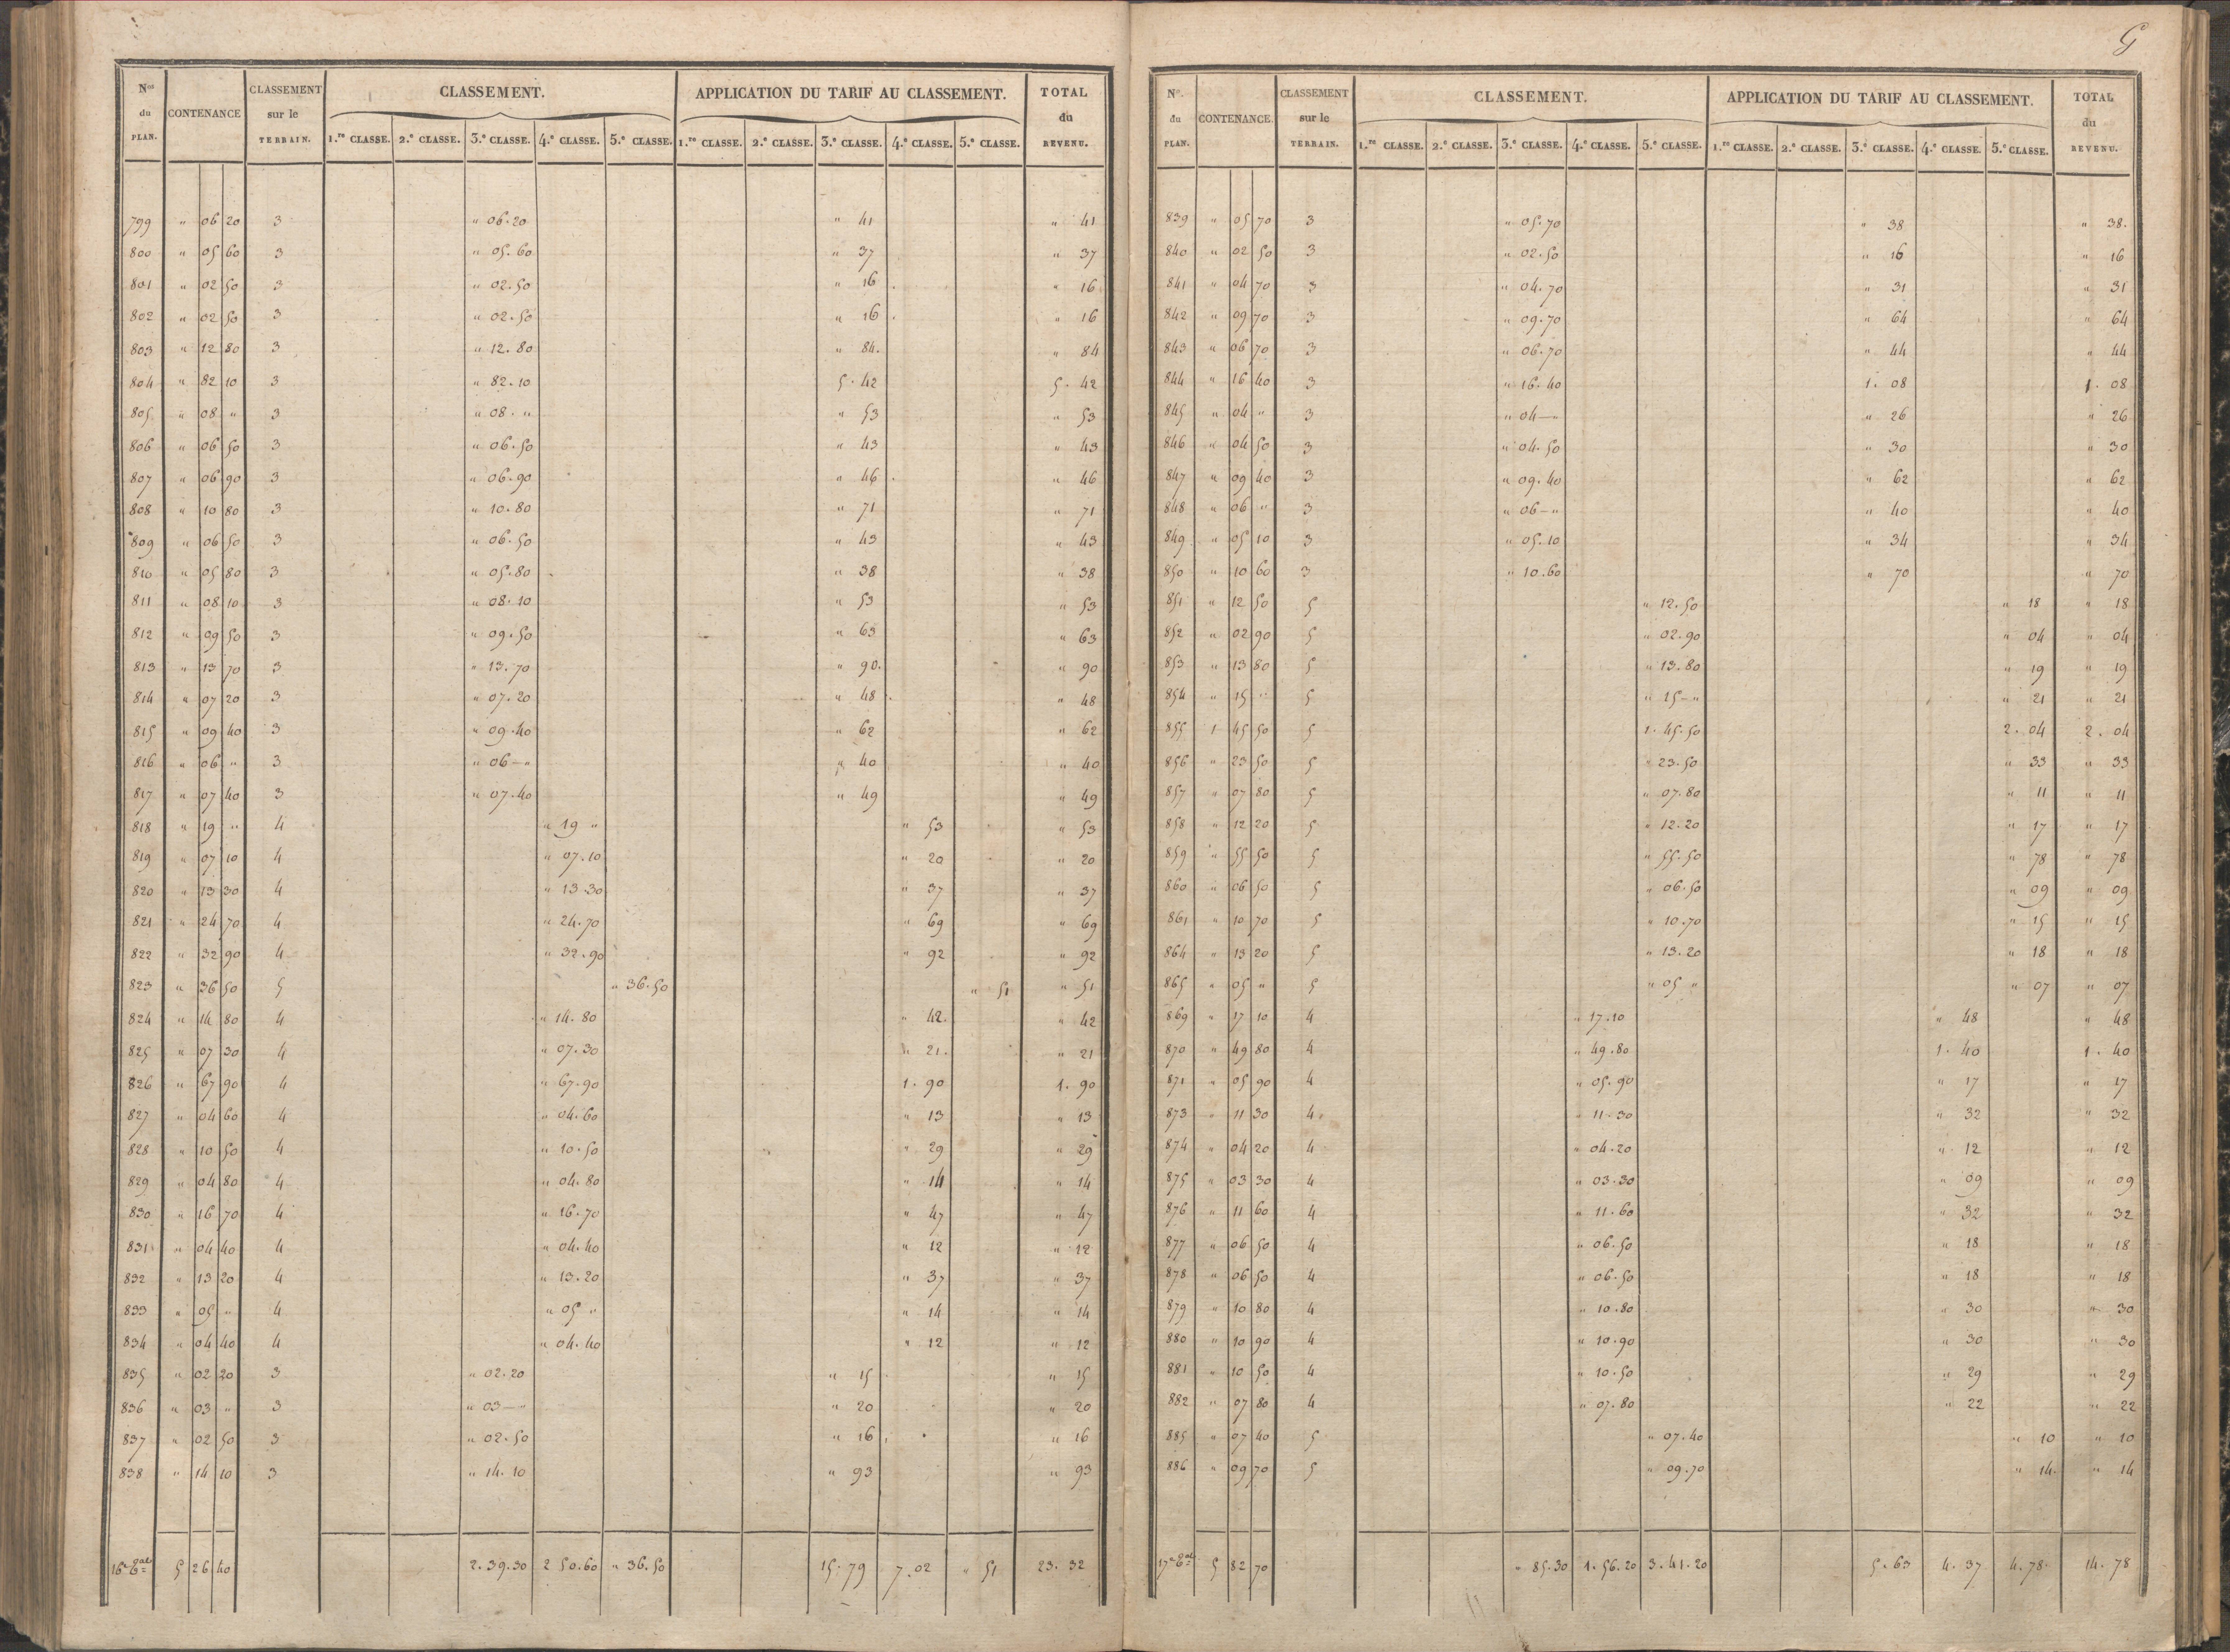 G
Nos du PLAN. CONTENANCE CLASSEMENT sur le TERRAIN. CLASSEMENT. APPLICATION DU TARIF AU CLASSEMENT. TOTAL du REVENU.
1.re CLASSE. 2.e CLASSE. 3.e CLASSE. 4.e CLASSE. 5.e CLASSE. 1.re CLASSE. 2.e CLASSE. 3.e CLASSE. 4.e CLASSE. 5.e CLASSE.
799 " 06 20 3 " 06.20 " 41 " 41
800 " 05 60 3 " 05.60 " 37 " 37
801 " 02 50 3 " 02.50 " 16 " 16
802 " 02 50 3 " 02.50 " 16 " 16
803 " 12 80 3 " 12.80 " 84. " 84
804 " 82 10 3 " 82.10 5.42 5.42
805 " 08 " 3 " 08. " " 53 " 53
806 " 06 50 3 " 06.50 " 43 " 43
807 " 06 90 3 " 06.90 " 46 " 46
808 " 10 80 3 " 10.80 " 71 " 71
809 " 06 50 3 " 06.50 " 43 " 43
810 " 05 80 3 " 05.80 " 38 " 38
811 " 08 10 3 " 08.10 " 53 " 53
812 " 09 50 3 " 09.50 " 63 " 63
813 " 13 70 3 " 13.70 " 90. " 90
814 " 07 20 3 " 07.20 " 48 " 48
815 " 09 40 3 " 09.40 " 62 " 62
816 " 06 " 3 " 06 — " " 40 " 40
817 " 07 40 3 " 07.40 " 49 " 49
818 " 19 " 4 " 19 " " 53 " 53
819 " 07 10 4 " 07.10 " 20 " 20
820 " 13 30 4 " 13.30 " 37 " 37
821 " 24 70 4 " 24.70 " 69 " 69
822 " 32 90 4 " 32.90 " 92 " 92
823 " 36 50 5 " 36.50 " 51 " 51
824 " 14 80 4 " 14.80 " 42. " 42
825 " 07 30 4 " 07.30 " 21. " 21
826 " 67 90 4 " 67.90 1.90 1.90
827 " 04 60 4 " 04.60 " 13 " 13
828 " 10 50 4 " 10.50 " 29 " 29
829 " 04 80 4 " 04.80 " 14 " 14
830 " 16 70 4 " 16.70 " 47 " 47
831 " 04 40 4 " 04.40 " 12 " 12
832 " 13 20 4 " 13.20 " 37 " 37
833 " 05 " 4 " 05 " " 14 " 14
834 " 04 40 4 " 04.40 " 12 " 12
835 " 02 20 3 " 02.20 " 15 " 15
836 " 03 " 3 " 03 — " " 20 " 20
837 " 02 50 3 " 02.50 " 16 " 16
838 " 14 10 3 " 14.10 " 93 " 93
5 26 40 2.39.30 2 50.60 " 36.50 15.79 7.02 " 51 23.32
No. du PLAN. CONTENANCE. CLASSEMENT sur le TERRAIN. CLASSEMENT. APPLICATION DU TARIF AU CLASSEMENT. TOTAL du REVENU.
1.re CLASSE. 2.e CLASSE. 3.e CLASSE. 4.e CLASSE. 5.e CLASSE. 1.re CLASSE. 2.e CLASSE. 3.e CLASSE. 4.e CLASSE. 5.e CLASSE.
839 " 05 70 3 " 05.70 " 38 " 38.
840 " 02 50 3 " 02.50 " 16 " 16
841 " 04 70 3 " 04.70 " 31 " 31
842 " 09 70 3 " 09.70 " 64 " 64
843 " 06 70 3 " 06.70 " 44 " 44
844 " 16 40 3 " 16.40 1.08 1.08
845 " 04 " 3 " 04 — " " 26 " 26
846 " 04 50 3 " 04.50 " 30 " 30
847 " 09 40 3 " 09.40 " 62 " 62
848 " 06 " 3 " 06 — " " 40 " 40
849 " 05 10 3 " 05.10 " 34 " 34
850 " 10 60 3 " 10.60 " 70 " 70
851 " 12 50 5 " 12.50 " 18 " 18
852 " 02 90 5 " 02.90 " 04 " 04
853 " 13 80 5 " 13.80 " 19 " 19
854 " 15 " 5 " 15 — " " 21 " 21
855 1 45 50 5 1.45.50 2.04 2.04
856 " 23 50 5 " 23.50 " 33 " 33
857 " 07 80 5 " 07.80 " 11 " 11
858 " 12 20 5 " 12.20 " 17 " 17
859 " 55 50 5 " 55.50 " 78 " 78
860 " 06 50 5 " 06.50 " 09 " 09
861 " 10 70 5 " 10.70 " 15 " 15
864 " 13 20 5 " 13.20 " 18 " 18
865 " 05 " 5 " 05 " " 07 " 07
869 " 17 10 4 " 17.10 " 48 " 48
870 " 49 80 4 " 49.80 1.40 1.40
871 " 05 90 4 " 05.90 " 17 " 17
873 " 11 30 4 " 11.30 " 32 " 32
874 " 04 20 4 " 04.20 " 12 " 12
875 " 03 30 4 " 03.30 " 09 " 09
876 " 11 60 4 " 11.60 " 32 " 32
877 " 06 50 4 " 06.50 " 18 " 18
878 " 06 50 4 " 06.50 " 18 " 18
879 " 10 80 4 " 10.80 " 30 " 30
880 " 10 90 4 " 10.90 " 30 " 30
881 " 10 50 4 " 10.50 " 29 " 29
882 " 07 80 4 " 07.80 " 22 " 22
885 " 07 40 5 " 07.40 " 10 " 10
886 " 09 70 5 " 09.70 " 14. " 14
5 82 70 " 85.30 1.56.20 3.41.20 5.63 4.37 4.78. 14.78